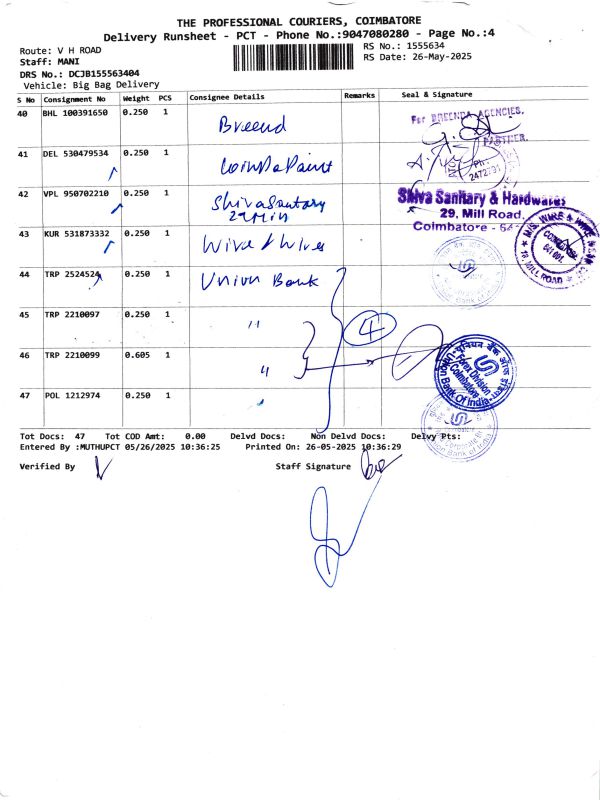 THE PROFESSIONAL COURIERS, COIMBATORE
Delivery Runsheet - PCT - Phone No.:9047080280 - Page No.:4
Route: V H ROAD
RS No.: 1555634
Staff: MANI
RS Date: 26-May-2025
DRS No.: DCJB155563404
Vehicle: Big Bag Delivery
S No Consignment No Weight PCS Consignee Details Remarks Seal & Signature
40 BHL 100391650 0.250 1 Breend
For BREENDA AGENCIES.
PARTNER.
41 DEL 530479534 0.250 1
Ph: 2472791
42 VPL 950702210 0.250 1
Shiva Sanitary & Hardwares
29, Mill Road,
Coimbatore - 64
43 KUR 531873332 0.250 1 Wire & Wires
M/S. WIRE & WIRE
COIMBATORE 641 001.
18, MILL ROAD
44 TRP 2524524 0.250 1 Union Bank
45 TRP 2210097 0.250 1 "
4
46 TRP 2210099 0.605 1 "
यूनियन बैंक ऑफ
Forex Division
Coimbatore
Bank Of India
47 POL 1212974 0.250 1 "
Tot Docs: 47 Tot COD Amt: 0.00 Delvd Docs: Non Delvd Docs: Delvy Pts:
Entered By :MUTHUPCT 05/26/2025 10:36:25 Printed On: 26-05-2025 10:36:29
Verified By Staff Signature